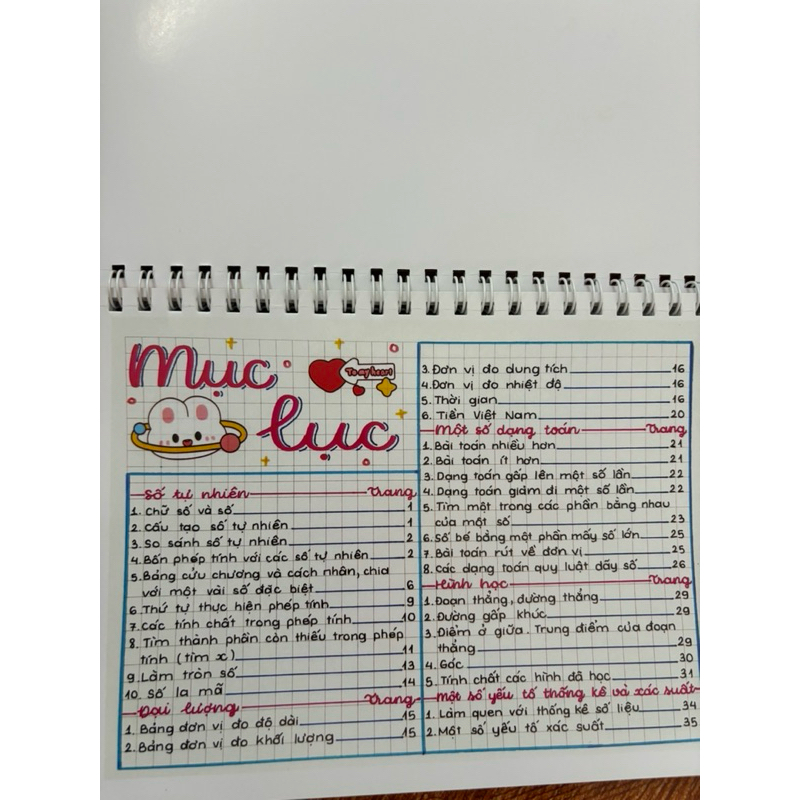 Mục
lục
To my heart
Số tự nhiên Trang
1. Chữ số và số 1
2. Cấu tạo số tự nhiên 1
3. So sánh số tự nhiên 2
4. Bốn phép tính với các số tự nhiên 2
5. Bảng cửu chương và cách nhân, chia
với một vài số đặc biệt 6
6. Thứ tự thực hiện phép tính 9
7. Các tính chất trong phép tính 10
8. Tìm thành phần còn thiếu trong phép
tính (tìm x) 11
9. Làm tròn số 13
10. Số la mã 14
Đại lượng Trang
1. Bảng đơn vị đo độ dài 15
2. Bảng đơn vị đo khối lượng 15
3. Đơn vị đo dung tích 16
4. Đơn vị đo nhiệt độ 16
5. Thời gian 16
6. Tiền Việt Nam 20
Một số dạng toán Trang
1. Bài toán nhiều hơn 21
2. Bài toán ít hơn 21
3. Dạng toán gấp lên một số lần 22
4. Dạng toán giảm đi một số lần 22
5. Tìm một trong các phần bằng nhau
của một số 23
6. Số bé bằng một phần mấy số lớn 25
7. Bài toán rút về đơn vị 25
8. Các dạng toán quy luật dãy số 26
Hình học Trang
1. Đoạn thẳng, đường thẳng 29
2. Đường gấp khúc 29
3. Điểm ở giữa. Trung điểm của đoạn
thẳng 29
4. Góc 30
5. Tính chất các hình đã học 31
Một số yếu tố thống kê và xác suất
1. Làm quen với thống kê số liệu 34
2. Một số yếu tố xác suất 35